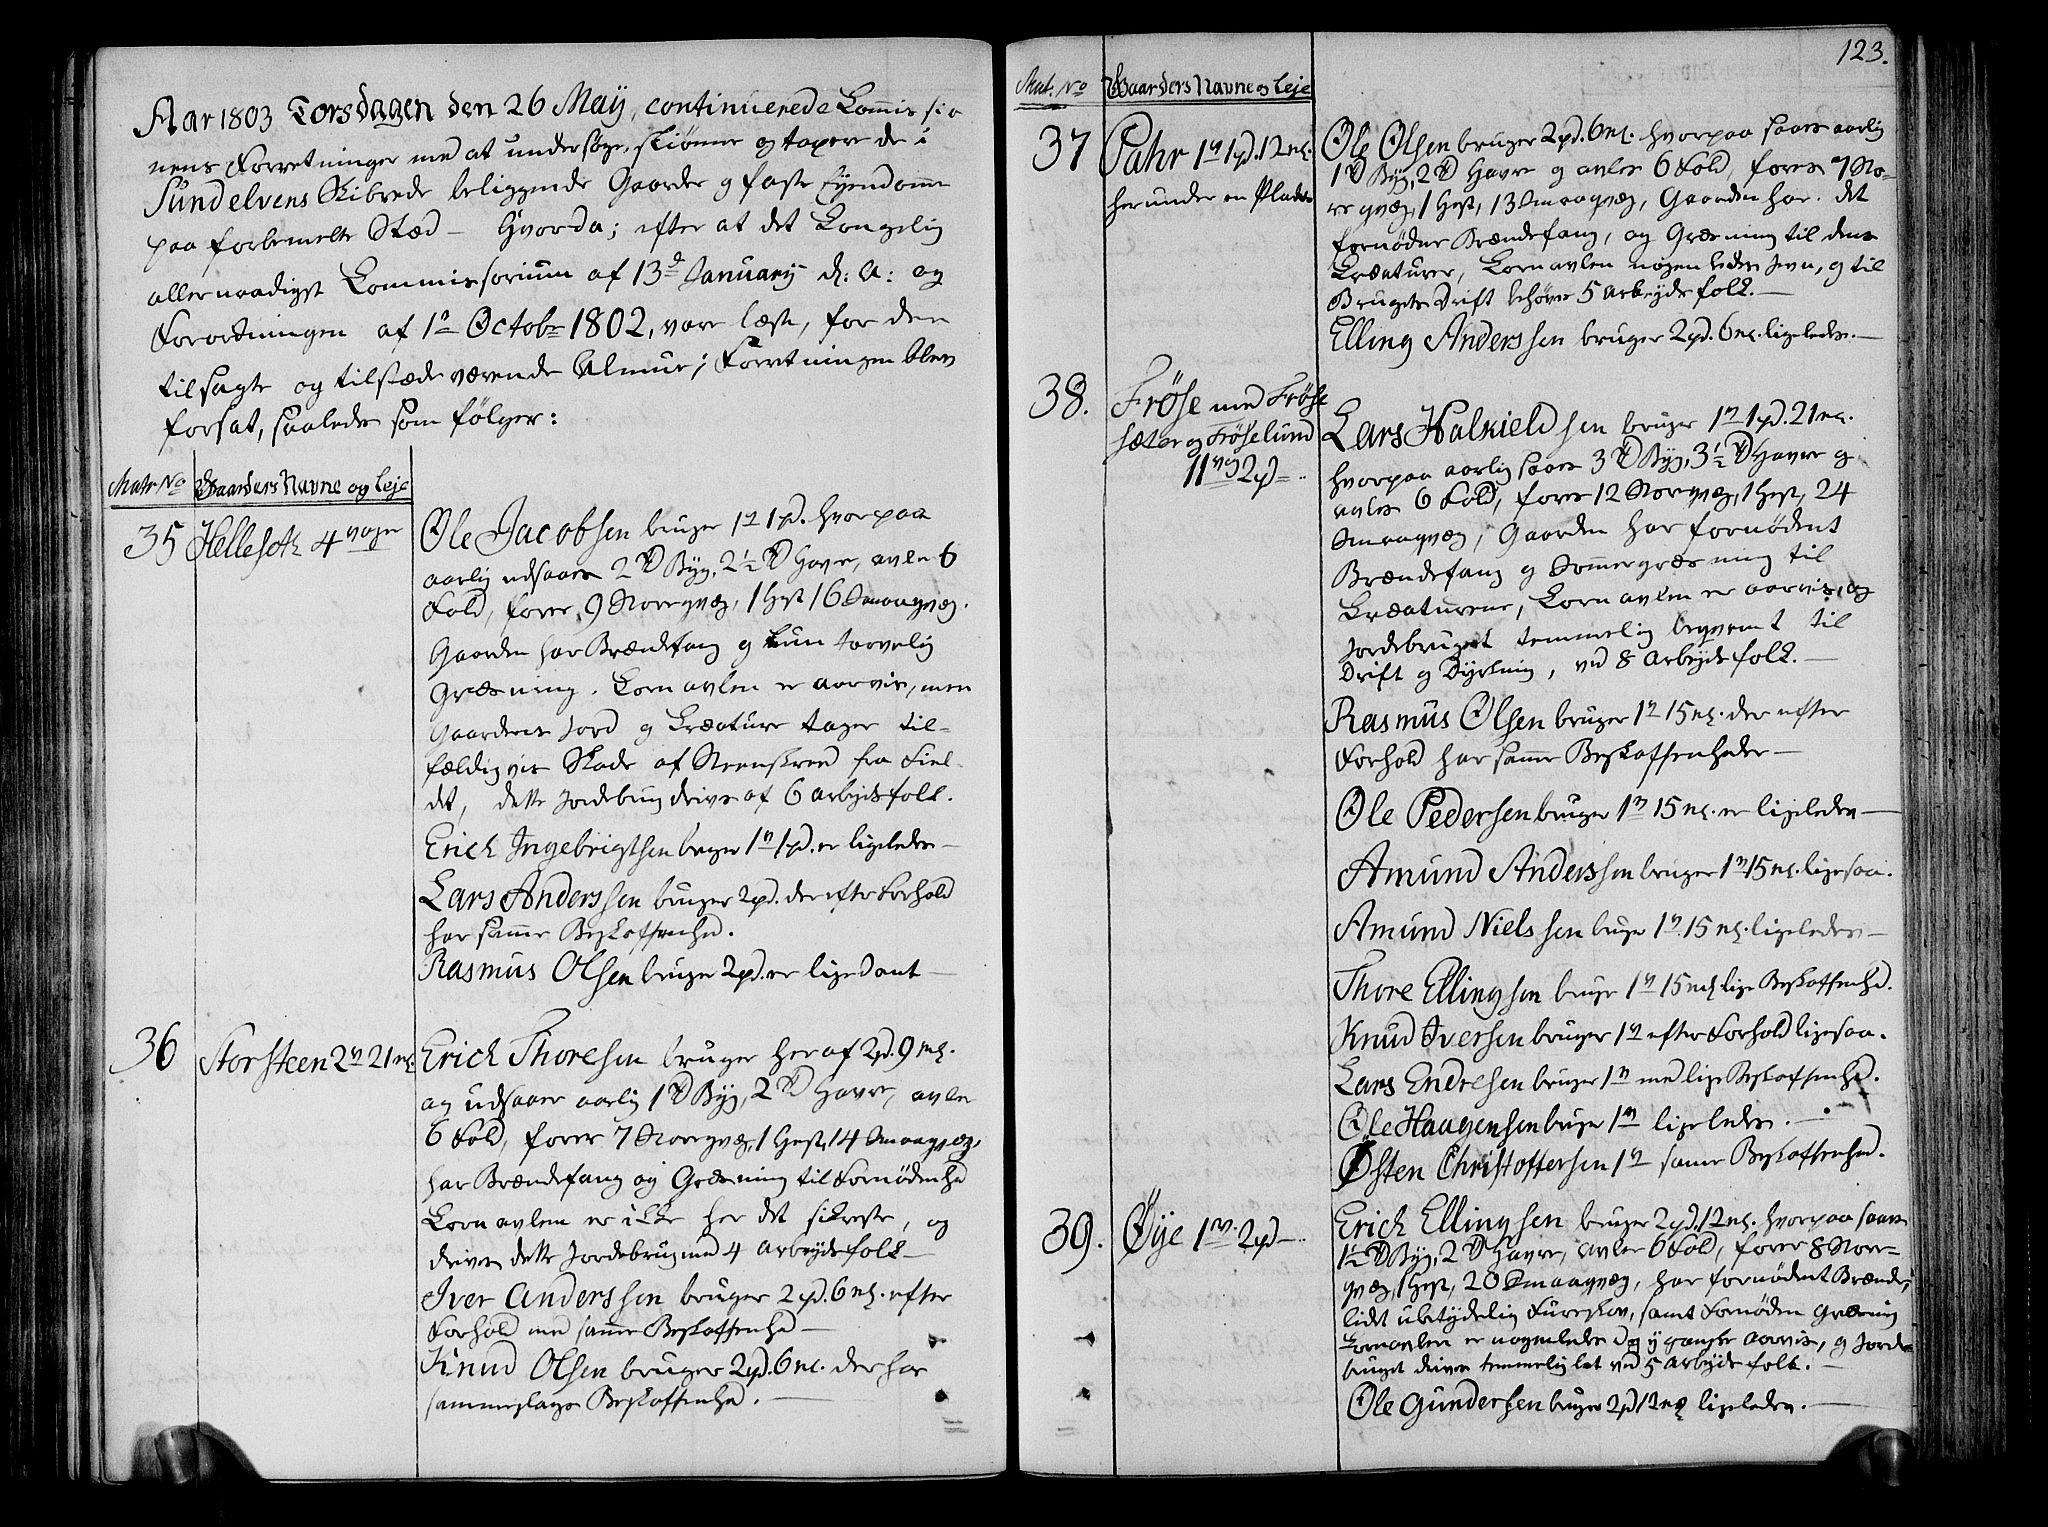 Aar 1803 Torsdagen den 26 May, continuerede Commissio
nens Forretninger med at undersøge, skiønne og taxere de i
Sundelvens Skibrede beliggende Gaarde og faste Eyendomme
paa forbemelte Stæd – Hvorda; efter at det Kongelig
allernaadigst Commissorium af 13de January d: A: og
Forordningen af 1e Octobr 1802, vare læste, for den
tilsagte og tilstædeværende Almue; Forretningen blev
forsat, saaledes som følger:
Matr No Gaarders Navne og Leje
35 Hellesøth 4 voger
Ole Jacobsen bruger 1v 1pd. hvorpaa
aarlig udsaaes 2 Td Byg, 2½ Td Havre, avle 6
Fold, fores 9 Storqvæg, 1 Hest 16 Smaaqvæg.
Gaarden har Brændefang og kun tarvelig
Græsning. Kornavlen er aarvis, men
Gaardens Jord og Kræature tager til-
fældigvis Skade af Steenskred fra Fiel-
det, dette Jordebrug drives af 6 Arbejdsfolk.
Erich Ingebrigtsen bruger 1v 1pd. er ligeledes –
Lars Anderssen bruger 2pd. der efter Forhold
har samme Beskaffenhed.
Rasmus Olsen bruger 2pd. er ligedant –
36 Storsteen 2v 21 mk.
Erich Thoresen bruger heraf 2pd. 9 mk.
og udsaaer aarlig 1 Td Byg, 2 Td Havre, avler
6 Fold, fores 7 Storqvæg, 1 Hest, 14 Smaaqvæg,
har Brændefang og Græsning til Fornødenhed
Kornavlen er ikke her det sikreste, og
drives dette Jordebrug med 4 Arbeydsfolk –
Iver Anderssen bruger 2pd. 6 mk. efter
Forhold med samme Beskaffenhed –
Knud Olsen bruger 2pd. 6 mk. der har
sammeslags Beskaffenhed. –
123.
Mat. No Gaarders Navne og Leje
37 Pahr 1v 1pd. 12 mk.
herunder en Plads
Ole Olsen bruger 2pd. 6 mk. hvorpaa saaes aarlig
1 Td Byg, 2 Td Havre og avles 6 Fold, fores 7 Sto-
reqvæg, 1 Hest, 13 Smaaqvæg, Gaarden har det
fornødne Brændefang, og Græsning til dens
Kræaturer, Kornavlen nogenledes Jevn, og til
Brugets Drift behøves 5 Arbeydsfolk. –
Elling Anderssen bruger 2pd. 6 mk. ligeledes. –
38. Frøse med Frøse
sæter og Frøselund
11 vog 2pd –
Lars Halkieldsen bruger 1v 1pd. 21 mk.
hvorpaa aarlig saaes 3 Td Byg, 3½ Td Havre og
avles 6 Fold, fores 12 Storqvæg, 1 Hest, 24
Smaaqvæg, Gaarden har fornødent
Brændefang og Sommergræsning til
Kræaturene, Kornavlen er aarvis, og
Jordebruget temmelig beqvemt til
Drift og Dyrkning, ved 8 Arbeydsfolk. –
Rasmus Olsen bruger 1v 15 mk. der efter
Forhold har samme Beskaffenheder –
Ole Pedersen bruger 1v 15 mk. er ligeledes –
Amund Anderssen bruger 1v 15 mk. ligesaa.
Amund Nielssen bruger 1v. 15 mk. ligeledes –
Thore Ellingsen bruger 1v 15 mk. lige Beskaffenhed.
Knud Iversen bruger 1v efter Forhold ligesaa.
Lars Endresen bruger 1v med lige Beskaffenhed.
Ole Haagensen bruger 1v ligeledes. –
Østen Christoffersen 1v samme Beskaffenhed.
39. Øye 1v. 2pd –
Erich Ellingsen bruger 2pd. 12 mk. hvorpaa saaes
1½ Td Byg, 2 Td Havre, avles 6 Fold, fores 8 Stor-
qvæg, 1 Hest, 20 Smaaqvæg, har fornødent Brænde,
lidet ubetydelig Fureskov, samt Fornøden Græsning
Kornavlen er nogenledes og ey ganske aarvis, og Jorde-
bruget drives temmelig let ved 5 Arbeydsfolk. –
Ole Gundersen bruger 2pd 12 mk ligeledes. –